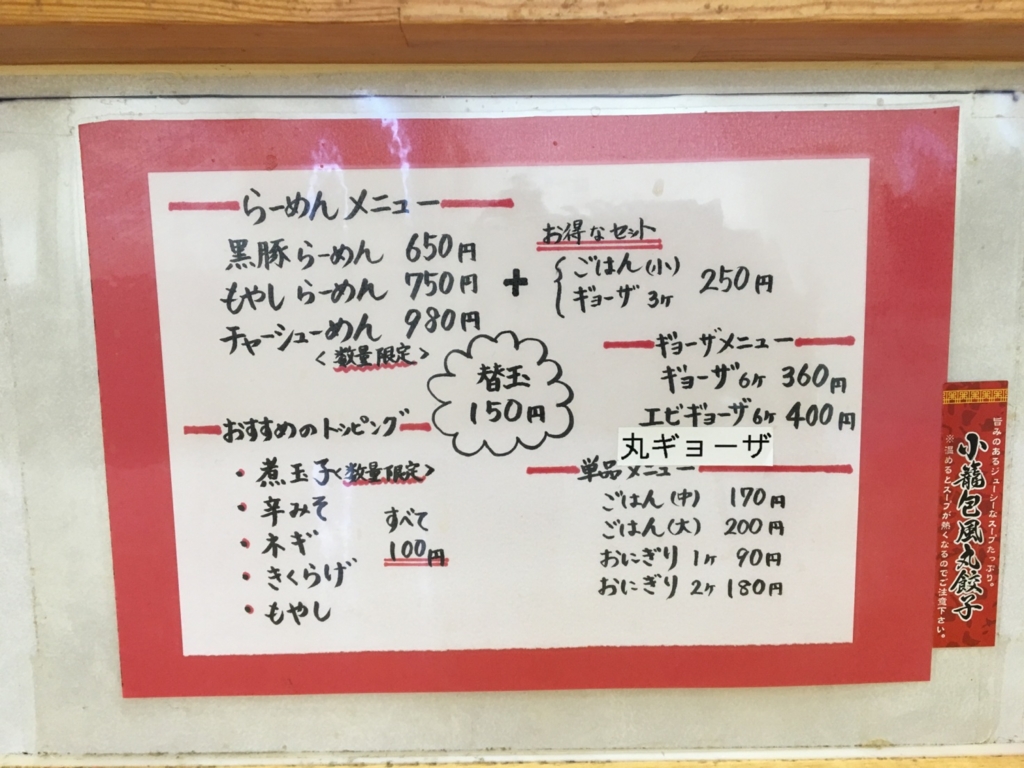 らーめんメニュー
黒豚らーめん 650円
もやしらーめん 750円
チャーシューめん 980円
<数量限定>
+
お得なセット
ごはん(小)
ギョーザ 3ヶ
250円
替玉
150円
ギョーザメニュー
ギョーザ6ヶ 360円
エビギョーザ6ヶ 400円
丸ギョーザ
おすすめのトッピング
・煮玉子<数量限定>
・辛みそ
・ネギ
・きくらげ
・もやし
すべて
100円
単品メニュー
ごはん(中) 170円
ごはん(大) 200円
おにぎり 1ヶ 90円
おにぎり 2ヶ 180円
旨みのあるジューシーなスープたっぷり。
小龍包風丸餃子
※温めるとスープが熱くなるのでご注意下さい。